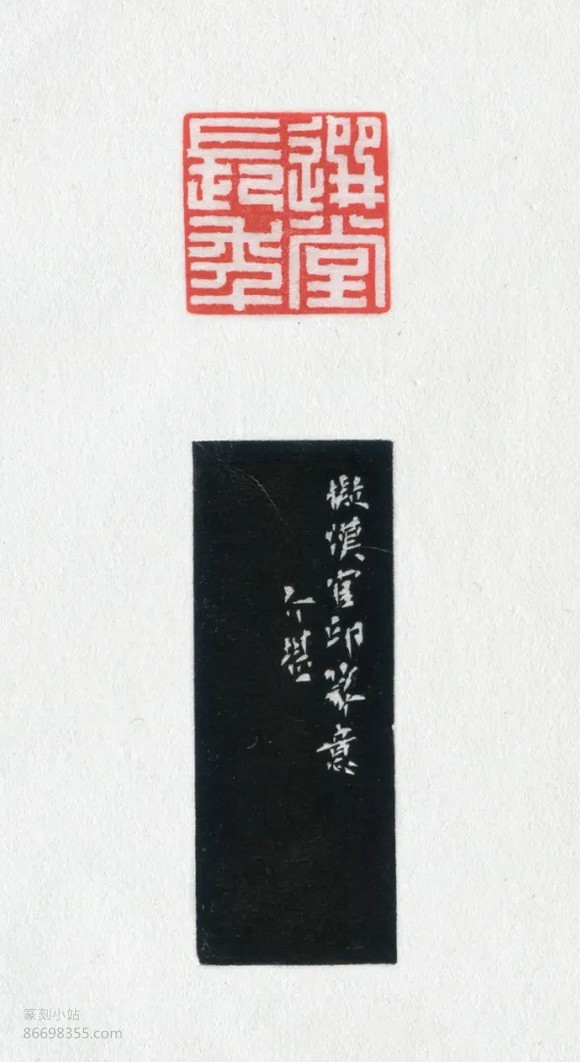 選堂
長年
擬漢官印篆意
介堪
篆刻小站
86698355.com